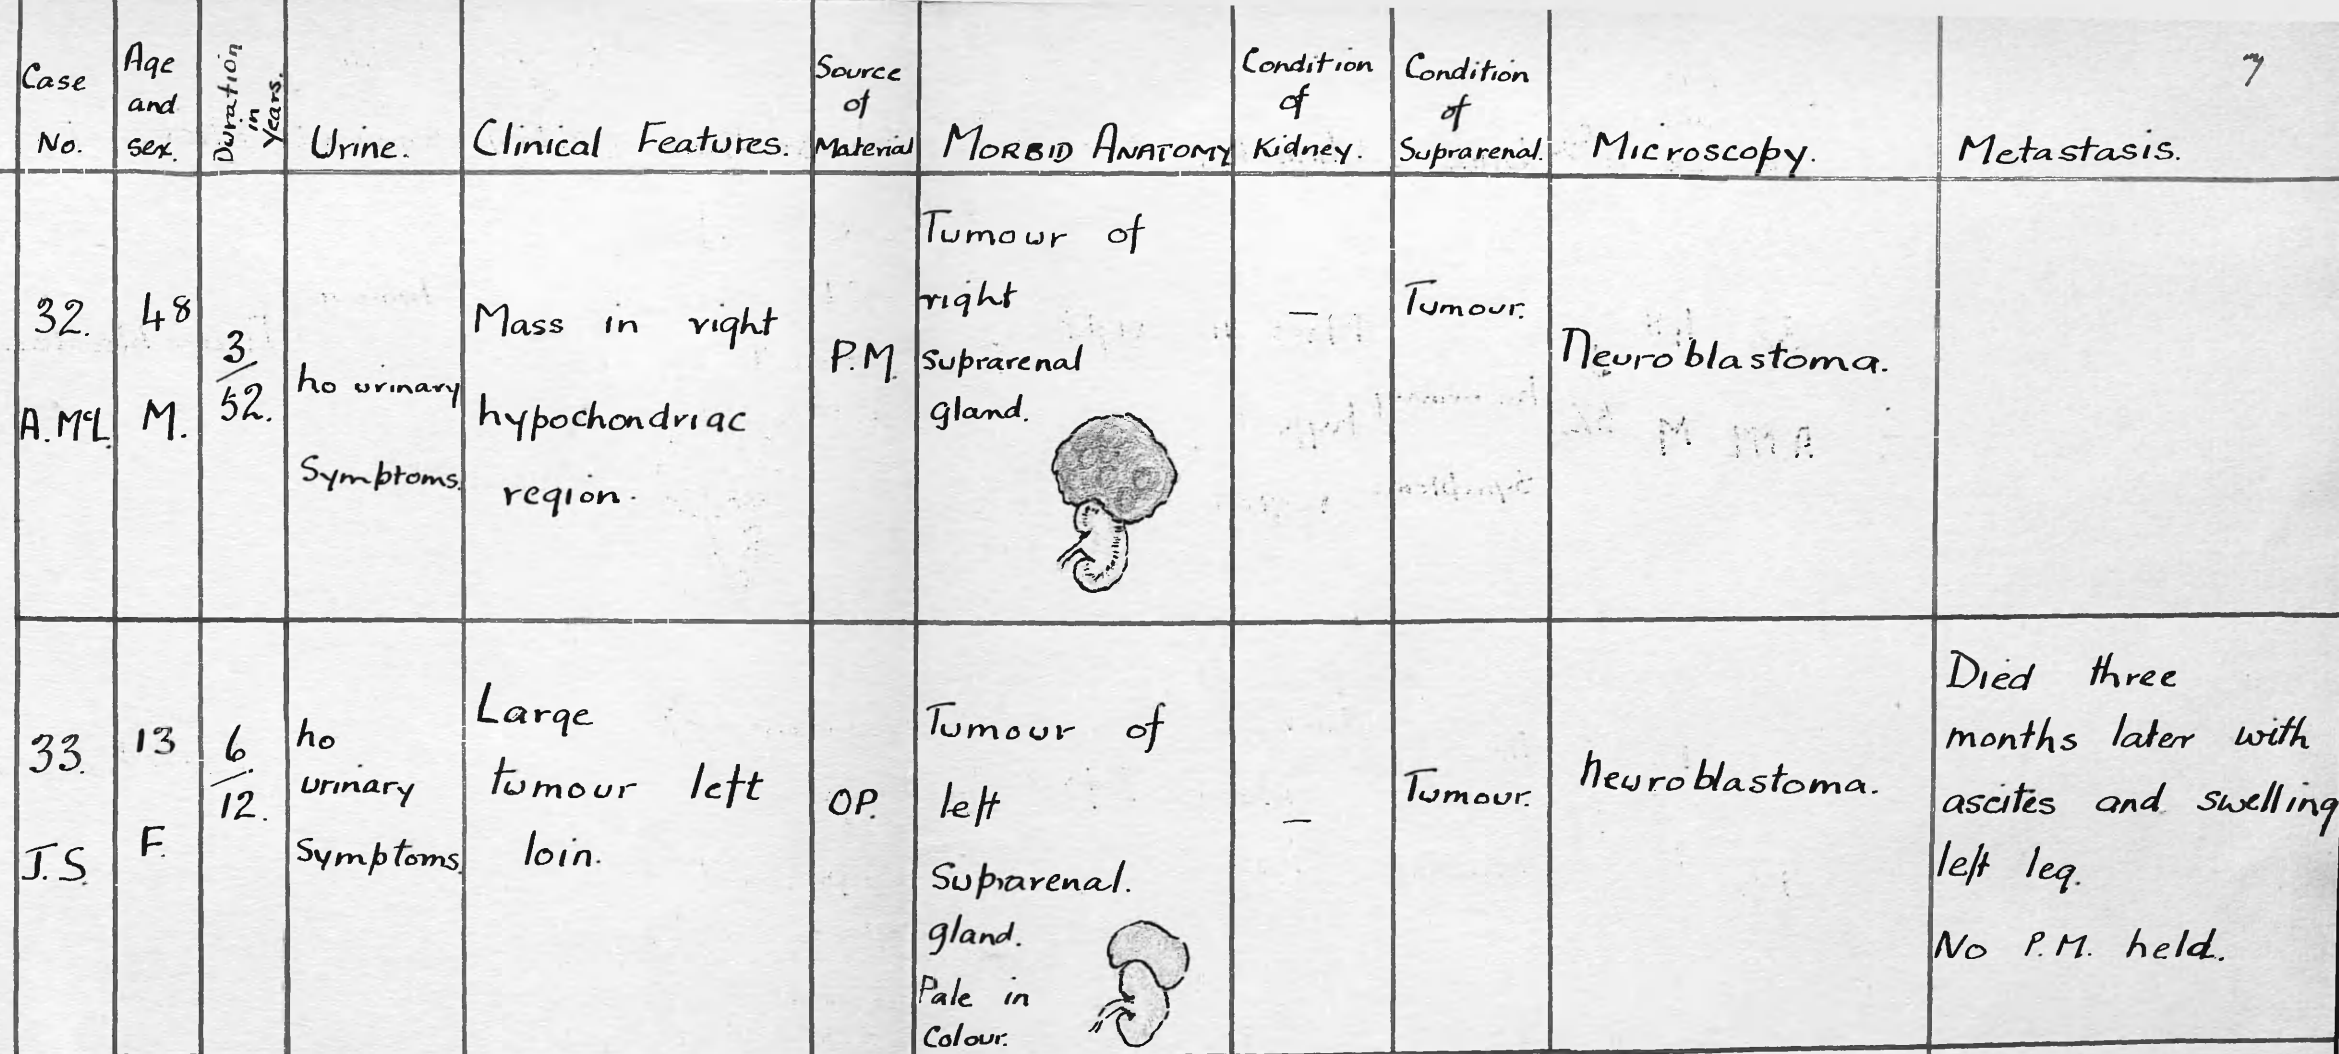 Case No.
Age and sex.
Duration in years.
Urine.
Clinical Features.
Source of Material
MORBID ANATOMY
Condition of Kidney.
Condition of Suprarenal.
Microscopy.
Metastasis.
32.
A. McL.
48
M.
3/52.
no urinary
Symptoms.
Mass in right
hypochondriac
region.
P.M.
Tumour of
right
suprarenal
gland.
—
Tumour.
Neuroblastoma.
33.
J.S.
13
F.
6/12.
no
urinary
Symptoms.
Large
tumour left
loin.
OP.
Tumour of
left
Suprarenal.
gland.
Pale in
Colour.
—
Tumour.
neuroblastoma.
Died three
months later with
ascites and swelling
left leg.
No P.M. held.